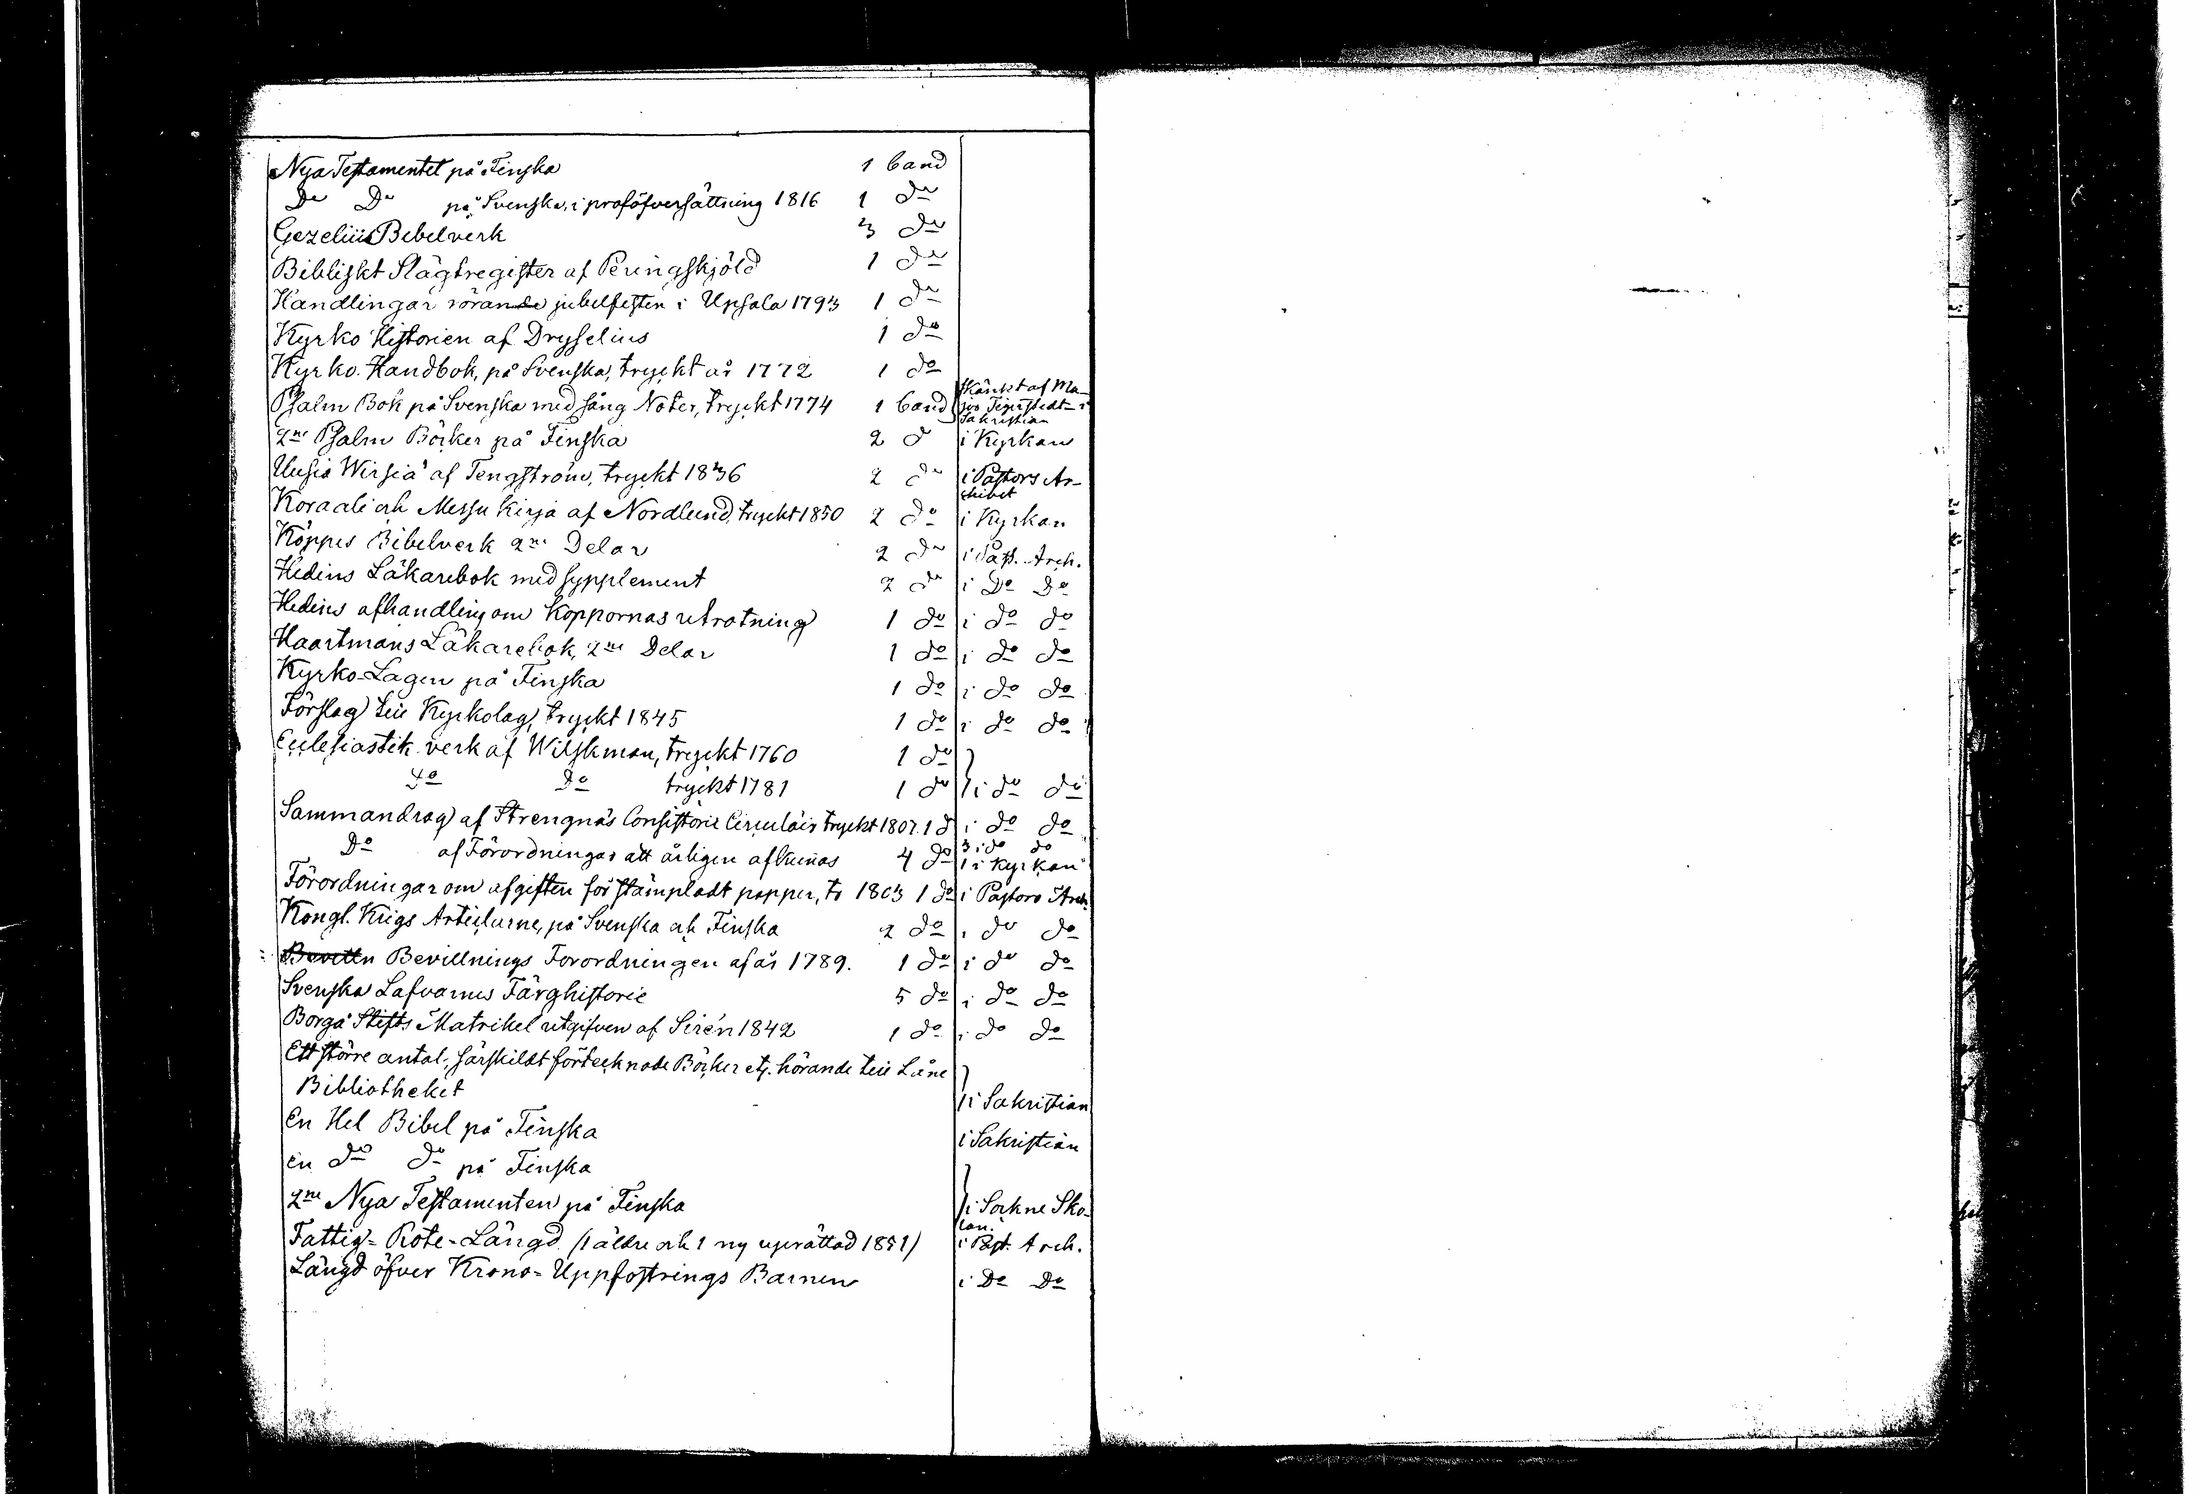 Nya Testamentet på Finska 1 band
Do Do på Svenska, i proföfversättning 1816 1 do
Gezelii Bibelverk 3 do
Bibliskt Slägtregister af Peringskjöld 1 do
Handlingar rörande jubelfesten i Upsala 1793 1 do
Kyrko Historien af Drysselius 1 do
Kyrko Handbok, på Svenska, tryckt år 1772 1 do
Psalm Bok på Svenska med sång Noter, tryckt 1774 1 band skänkt af Ma-
jor Tigerstedt i
Sakristian
2ne Psalm Böcker på Finska 2 d i Kyrkan
Uusia Wirsiä af Tengström, tryckt 1836 2 do i Pastors Ar-
chivet
Koraali och Messu Kirja af Nordlund, tryckt 1850 2 do i Kyrkan
Köppes Bibelverk 2ne Delar 2 do i Past. Arch.
Hedins Läkarebok med sypplement 2 do i Do Do
Hedins afhandling om Koppornas utrotning 1 do i do do
Haartmans Läkarebok, 2ne Delar 1 do i do do
Kyrko-Lagen på Finska 1 do i do do
Förslag till Kyrkolag, tryckt 1845 1 do i do do
Ecclesiastik verk af Wilskman, tryckt 1760 1 do
do do tryckt 1781 1 do i do do
Sammandrag af Strengnäs Consistorie Circulair tryckt 1807. 1 d i do do
Do af Förordningar att årligen afkunnas 4 do 3 i do do
1 i Kyrkan
Förordningar om afgiften för stämpladt papper, tr 1803 1 do i Pastors Arch.
Kongl. Krigs Articlarne, på Svenska och Finska 2 do i do do
Bevilln Bevillnings Förordningen af år 1789. 1 do i do do
Svenska Lafvarnes Färghistorie 5 do i do do
Borgå Stifts Matrikel utgifven af Sirén 1842 1 do i do do
Ett större antal, särskildt förtecknade Böcker etc. hörande till Låne
Bibliotheket i Sakristian
En Hel Bibel på Finska i Sakristian
En do do på Finska
2ne Nya Testamenten på Finska i Sockne Sko-
lan.
Fattig-Rote-Längd (1 äldre och 1 ny upprättad 1851) i Past. Arch.
Längd öfver Krono-Uppfostrings Barnen i Do Do